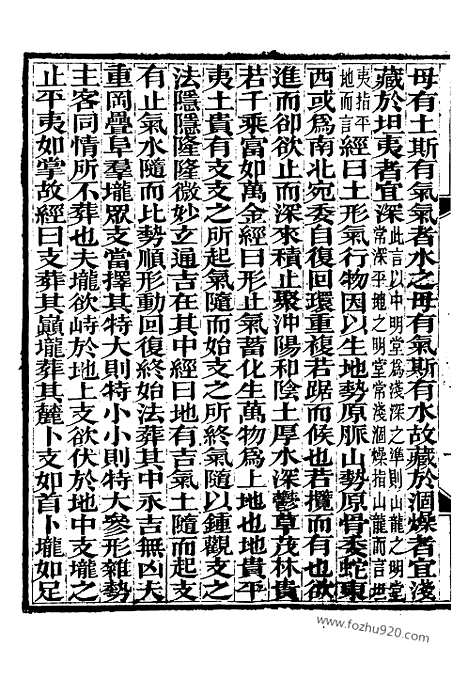 母有土斯有氣氣者水之母有氣斯有水故藏於涸燥者宜淺
藏於坦夷者宜深此言以中明堂爲淺深之準則山龍之明堂常深平地之明堂常淺涸燥指山龍而言坦
夷指平地而言經曰土形氣行物因以生地勢原脈山勢原骨委蛇東
西或爲南北宛委自復回環重複若踞而候也若攬而有也欲
進而卻欲止而深來積止聚沖陽和陰土厚水深鬱草茂林貴
若千乘富如萬金經曰形止氣蓄化生萬物爲上地也地貴平
夷土貴有支支之所起氣隨而始支之所終氣隨以鍾觀支之
法隱隱隆隆微妙玄通吉在其中經曰地有吉氣土隨而起支
有止氣水隨而比勢順形動回復終始法葬其中永吉無凶夫
重岡疊阜羣壠眾支當擇其特大則特小小則特大參形雜勢
主客同情所不葬也夫壠欲峙於地上支欲伏於地中支壠之
止平夷如掌故經曰支葬其巔壠葬其麓卜支如首卜壠如足
www.fozhu920.com